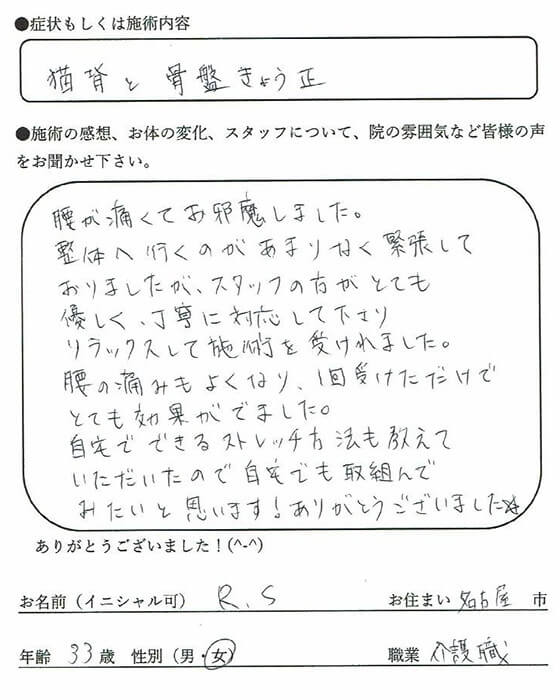 ●症状もしくは施術内容
猫背と骨盤きょう正
●施術の感想、お体の変化、スタッフについて、院の雰囲気など皆様の声
をお聞かせ下さい。
腰が痛くてお邪魔しました。
整体へ行くのがあまりなく緊張して
おりましたが、スタッフの方がとても
優しく、丁寧に対応して下さり
リラックスして施術を受けれました。
腰の痛みもよくなり、1回受けただけで
とても効果がでました。
自宅でできるストレッチ方法も教えて
いただいたので自宅でも取組んで
みたいと思います!ありがとうございました☆
ありがとうございました!(^-^)
お名前(イニシャル可) R.S お住まい 名古屋 市
年齢 33歳 性別(男・女) 職業 介護職